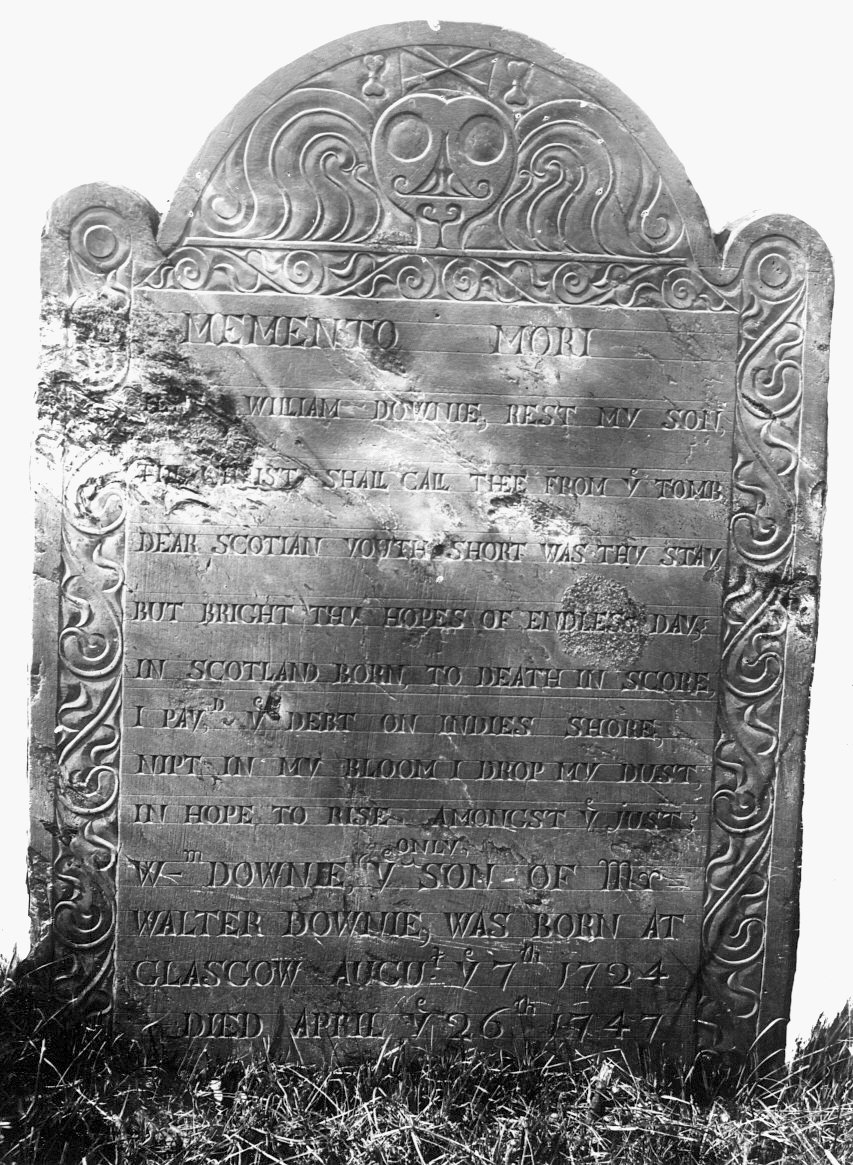 MEMENTO MORI
WILLIAM DOWNIE, REST MY SON,
CHRIST SHAL CALL THEE FROM Yᵉ TOMB
DEAR SCOTIAN YOUTH, SHORT WAS THY STAY,
BUT BRIGHT THY HOPES OF ENDLESS DAY:
IN SCOTLAND BORN, TO DEATH IN SCORE,
I PAY,ᴰ Yᵉ DEBT ON INDIES SHORE,
NIPT IN MY BLOOM I DROP MY DUST,
IN HOPE TO RISE AMONGST Yᵉ JUST:
Wᵐ DOWNIE, Yᵉ ONLY SON OF Mʳ
WALTER DOWNIE, WAS BORN AT
GLASGOW AUGUˢᵗ Yᵉ 7ᵗʰ 1724
DIED APRIL Yᵉ 26ᵗʰ 1747